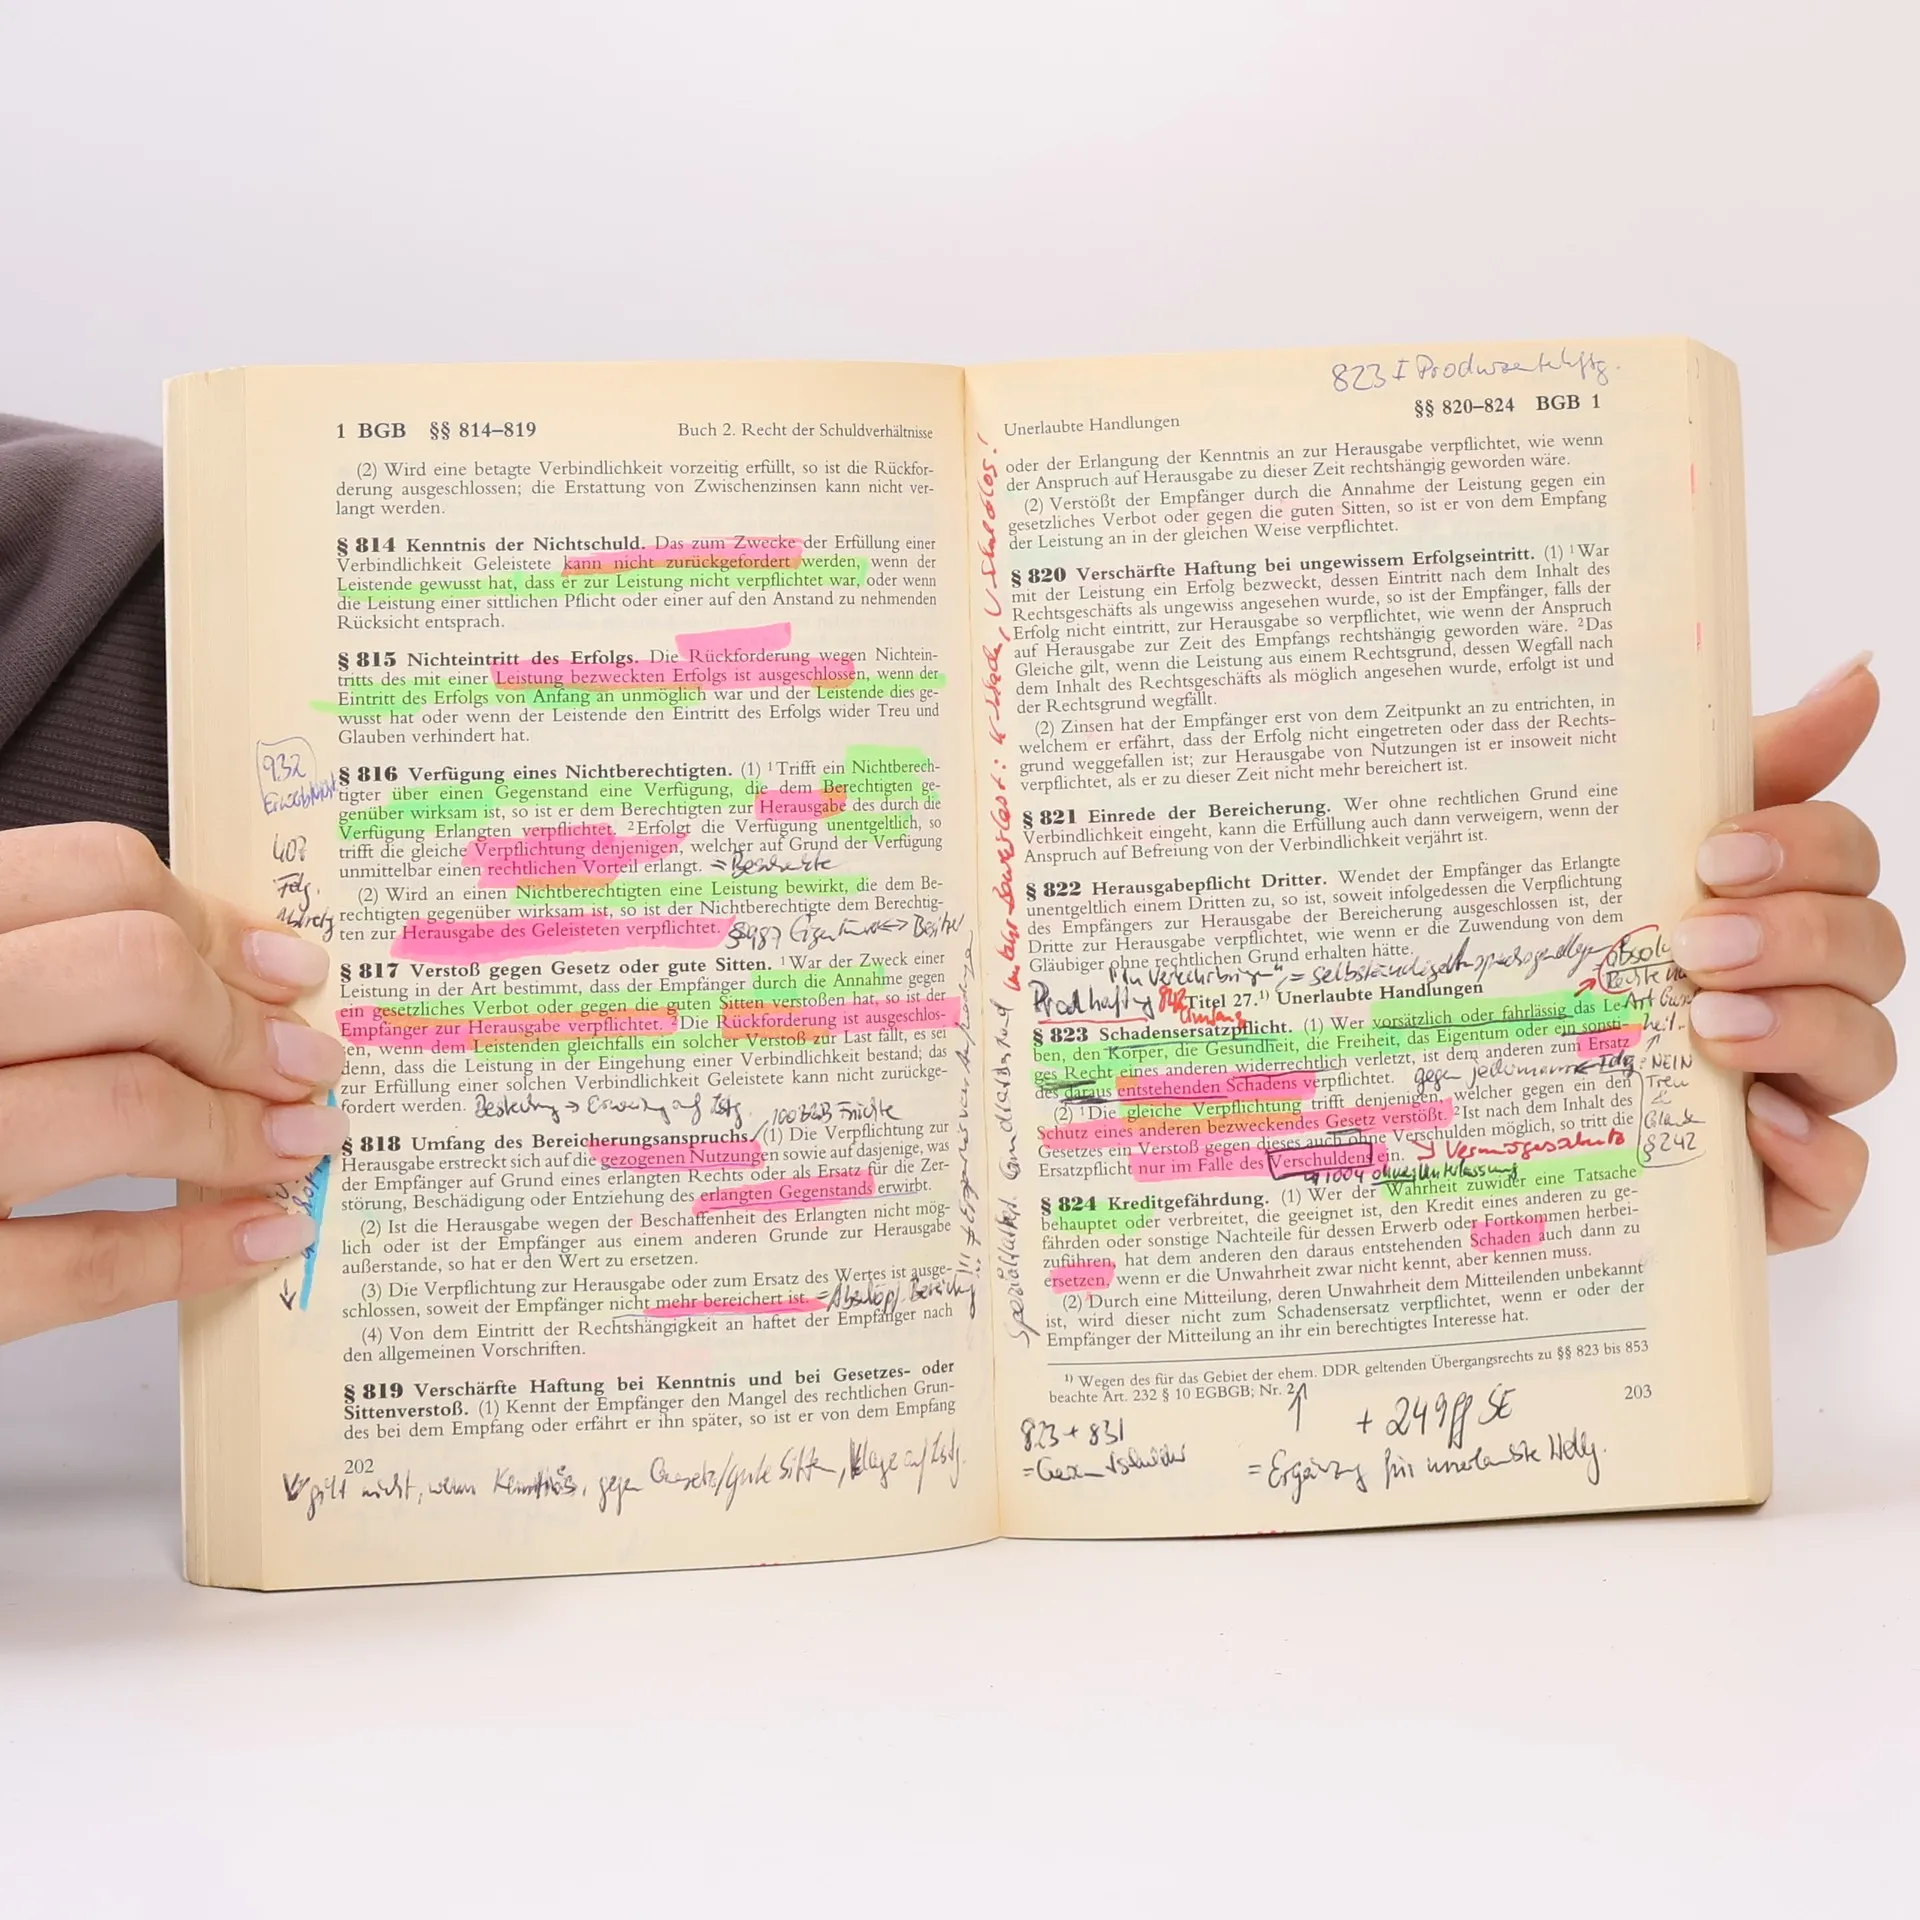 1 BGB §§ 814–819
Buch 2. Recht der Schuldverhältnisse
(2) Wird eine betagte Verbindlichkeit vorzeitig erfüllt, so ist die Rückfor-
derung ausgeschlossen; die Erstattung von Zwischenzinsen kann nicht ver-
langt werden.
§ 814 Kenntnis der Nichtschuld. Das zum Zwecke der Erfüllung einer
Verbindlichkeit Geleistete kann nicht zurückgefordert werden, wenn der
Leistende gewusst hat, dass er zur Leistung nicht verpflichtet war, oder wenn
die Leistung einer sittlichen Pflicht oder einer auf den Anstand zu nehmenden
Rücksicht entsprach.
§ 815 Nichteintritt des Erfolgs. Die Rückforderung wegen Nichtein-
tritts des mit einer Leistung bezweckten Erfolgs ist ausgeschlossen, wenn der
Eintritt des Erfolgs von Anfang an unmöglich war und der Leistende dies ge-
wusst hat oder wenn der Leistende den Eintritt des Erfolgs wider Treu und
Glauben verhindert hat.
932
§ 816 Verfügung eines Nichtberechtigten. (1) ¹Trifft ein Nichtberech-
tigter über einen Gegenstand eine Verfügung, die dem Berechtigten ge-
genüber wirksam ist, so ist er dem Berechtigten zur Herausgabe des durch die
Verfügung Erlangten verpflichtet. ²Erfolgt die Verfügung unentgeltlich, so
trifft die gleiche Verpflichtung denjenigen, welcher auf Grund der Verfügung
unmittelbar einen rechtlichen Vorteil erlangt. = Beschenkte
(2) Wird an einen Nichtberechtigten eine Leistung bewirkt, die dem Be-
rechtigten gegenüber wirksam ist, so ist der Nichtberechtigte dem Berechtig-
ten zur Herausgabe des Geleisteten verpflichtet. § 987 Eigentümer <-> Besitzer
§ 817 Verstoß gegen Gesetz oder gute Sitten. ¹War der Zweck einer
Leistung in der Art bestimmt, dass der Empfänger durch die Annahme gegen
ein gesetzliches Verbot oder gegen die guten Sitten verstoßen hat, so ist der
Empfänger zur Herausgabe verpflichtet. ²Die Rückforderung ist ausgeschlos-
sen, wenn dem Leistenden gleichfalls ein solcher Verstoß zur Last fällt, es sei
denn, dass die Leistung in der Eingehung einer Verbindlichkeit bestand; das
zur Erfüllung einer solchen Verbindlichkeit Geleistete kann nicht zurückge-
fordert werden.
100 BGB Früchte
§ 818 Umfang des Bereicherungsanspruchs. (1) Die Verpflichtung zur
Herausgabe erstreckt sich auf die gezogenen Nutzungen sowie auf dasjenige, was
der Empfänger auf Grund eines erlangten Rechts oder als Ersatz für die Zer-
störung, Beschädigung oder Entziehung des erlangten Gegenstands erwirbt.
(2) Ist die Herausgabe wegen der Beschaffenheit des Erlangten nicht mög-
lich oder ist der Empfänger aus einem anderen Grunde zur Herausgabe
außerstande, so hat er den Wert zu ersetzen.
(3) Die Verpflichtung zur Herausgabe oder zum Ersatz des Wertes ist ausge-
schlossen, soweit der Empfänger nicht mehr bereichert ist.
(4) Von dem Eintritt der Rechtshängigkeit an haftet der Empfänger nach
den allgemeinen Vorschriften.
§ 819 Verschärfte Haftung bei Kenntnis und bei Gesetzes- oder
Sittenverstoß. (1) Kennt der Empfänger den Mangel des rechtlichen Grun-
des bei dem Empfang oder erfährt er ihn später, so ist er von dem Empfang
202
gilt nicht, wenn gegen Gesetz/gute Sitten, Klage auf
823 I
Unerlaubte Handlungen
§§ 820–824 BGB 1
oder der Erlangung der Kenntnis an zur Herausgabe verpflichtet, wie wenn
der Anspruch auf Herausgabe zu dieser Zeit rechtshängig geworden wäre.
(2) Verstößt der Empfänger durch die Annahme der Leistung gegen ein
gesetzliches Verbot oder gegen die guten Sitten, so ist er von dem Empfang
der Leistung an in der gleichen Weise verpflichtet.
§ 820 Verschärfte Haftung bei ungewissem Erfolgseintritt. (1) ¹War
mit der Leistung ein Erfolg bezweckt, dessen Eintritt nach dem Inhalt des
Rechtsgeschäfts als ungewiss angesehen wurde, so ist der Empfänger, falls der
Erfolg nicht eintritt, zur Herausgabe so verpflichtet, wie wenn der Anspruch
auf Herausgabe zur Zeit des Empfangs rechtshängig geworden wäre. ²Das
Gleiche gilt, wenn die Leistung aus einem Rechtsgrund, dessen Wegfall nach
dem Inhalt des Rechtsgeschäfts als möglich angesehen wurde, erfolgt ist und
der Rechtsgrund wegfällt.
(2) Zinsen hat der Empfänger erst von dem Zeitpunkt an zu entrichten, in
welchem er erfährt, dass der Erfolg nicht eingetreten oder dass der Rechts-
grund weggefallen ist; zur Herausgabe von Nutzungen ist er insoweit nicht
verpflichtet, als er zu dieser Zeit nicht mehr bereichert ist.
§ 821 Einrede der Bereicherung. Wer ohne rechtlichen Grund eine
Verbindlichkeit eingeht, kann die Erfüllung auch dann verweigern, wenn der
Anspruch auf Befreiung von der Verbindlichkeit verjährt ist.
§ 822 Herausgabepflicht Dritter. Wendet der Empfänger das Erlangte
unentgeltlich einem Dritten zu, so ist, soweit infolgedessen die Verpflichtung
des Empfängers zur Herausgabe der Bereicherung ausgeschlossen ist, der
Dritte zur Herausgabe verpflichtet, wie wenn er die Zuwendung von dem
Gläubiger ohne rechtlichen Grund erhalten hätte.
Prodhaftung
Titel 27.¹⁾ Unerlaubte Handlungen
§ 823 Schadensersatzpflicht. (1) Wer vorsätzlich oder fahrlässig das Le-
ben, den Körper, die Gesundheit, die Freiheit, das Eigentum oder ein sonsti-
ges Recht eines anderen widerrechtlich verletzt, ist dem anderen zum Ersatz
des daraus entstehenden Schadens verpflichtet. gegen jedermann
NEIN
Treu
§ 242
(2) ¹Die gleiche Verpflichtung trifft denjenigen, welcher gegen ein den
Schutz eines anderen bezweckendes Gesetz verstößt. ²Ist nach dem Inhalt des
Gesetzes ein Verstoß gegen dieses auch ohne Verschulden möglich, so tritt die
Ersatzpflicht nur im Falle des Verschuldens ein. Vermögensschutz
§ 824 Kreditgefährdung. (1) Wer der Wahrheit zuwider eine Tatsache
behauptet oder verbreitet, die geeignet ist, den Kredit eines anderen zu ge-
fährden oder sonstige Nachteile für dessen Erwerb oder Fortkommen herbei-
zuführen, hat dem anderen den daraus entstehenden Schaden auch dann zu
ersetzen, wenn er die Unwahrheit zwar nicht kennt, aber kennen muss.
(2) Durch eine Mitteilung, deren Unwahrheit dem Mitteilenden unbekannt
ist, wird dieser nicht zum Schadensersatz verpflichtet, wenn er oder der
Empfänger der Mitteilung an ihr ein berechtigtes Interesse hat.
¹⁾ Wegen des für das Gebiet der ehem. DDR geltenden Übergangsrechts zu §§ 823 bis 853
beachte Art. 232 § 10 EGBGB; Nr. 2.
203
823 + 831
+ 249 ff SE
= Ergänzung für unerlaubte Hdlg.